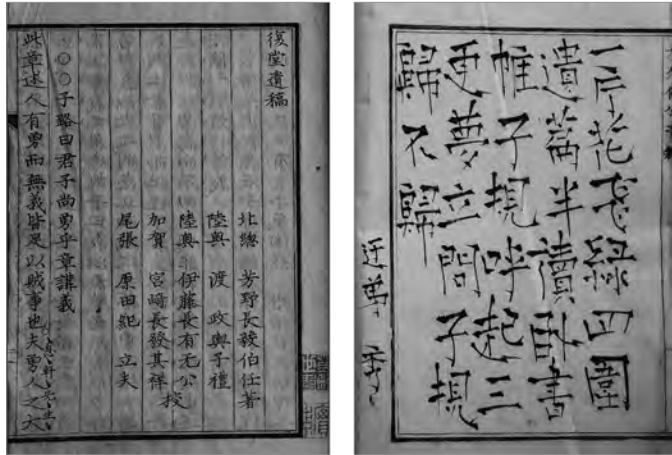 一片花綠四圍
遺篇半讀臥書
帷子規呼起三
更夢立問子規
歸不歸
復堂遺稿
北總 芳野長毅伯任著
陸奧 渡 政輿子禮
陸奧 伊藤長有无公
加賀 宮﨑長發其祥 校
尾張 原田紀 立夫
○○子路曰君子尚勇乎章講義
此章述人有勇而無義皆足以賊事也夫勇人之大